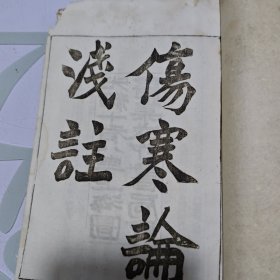 傷寒論
淺註